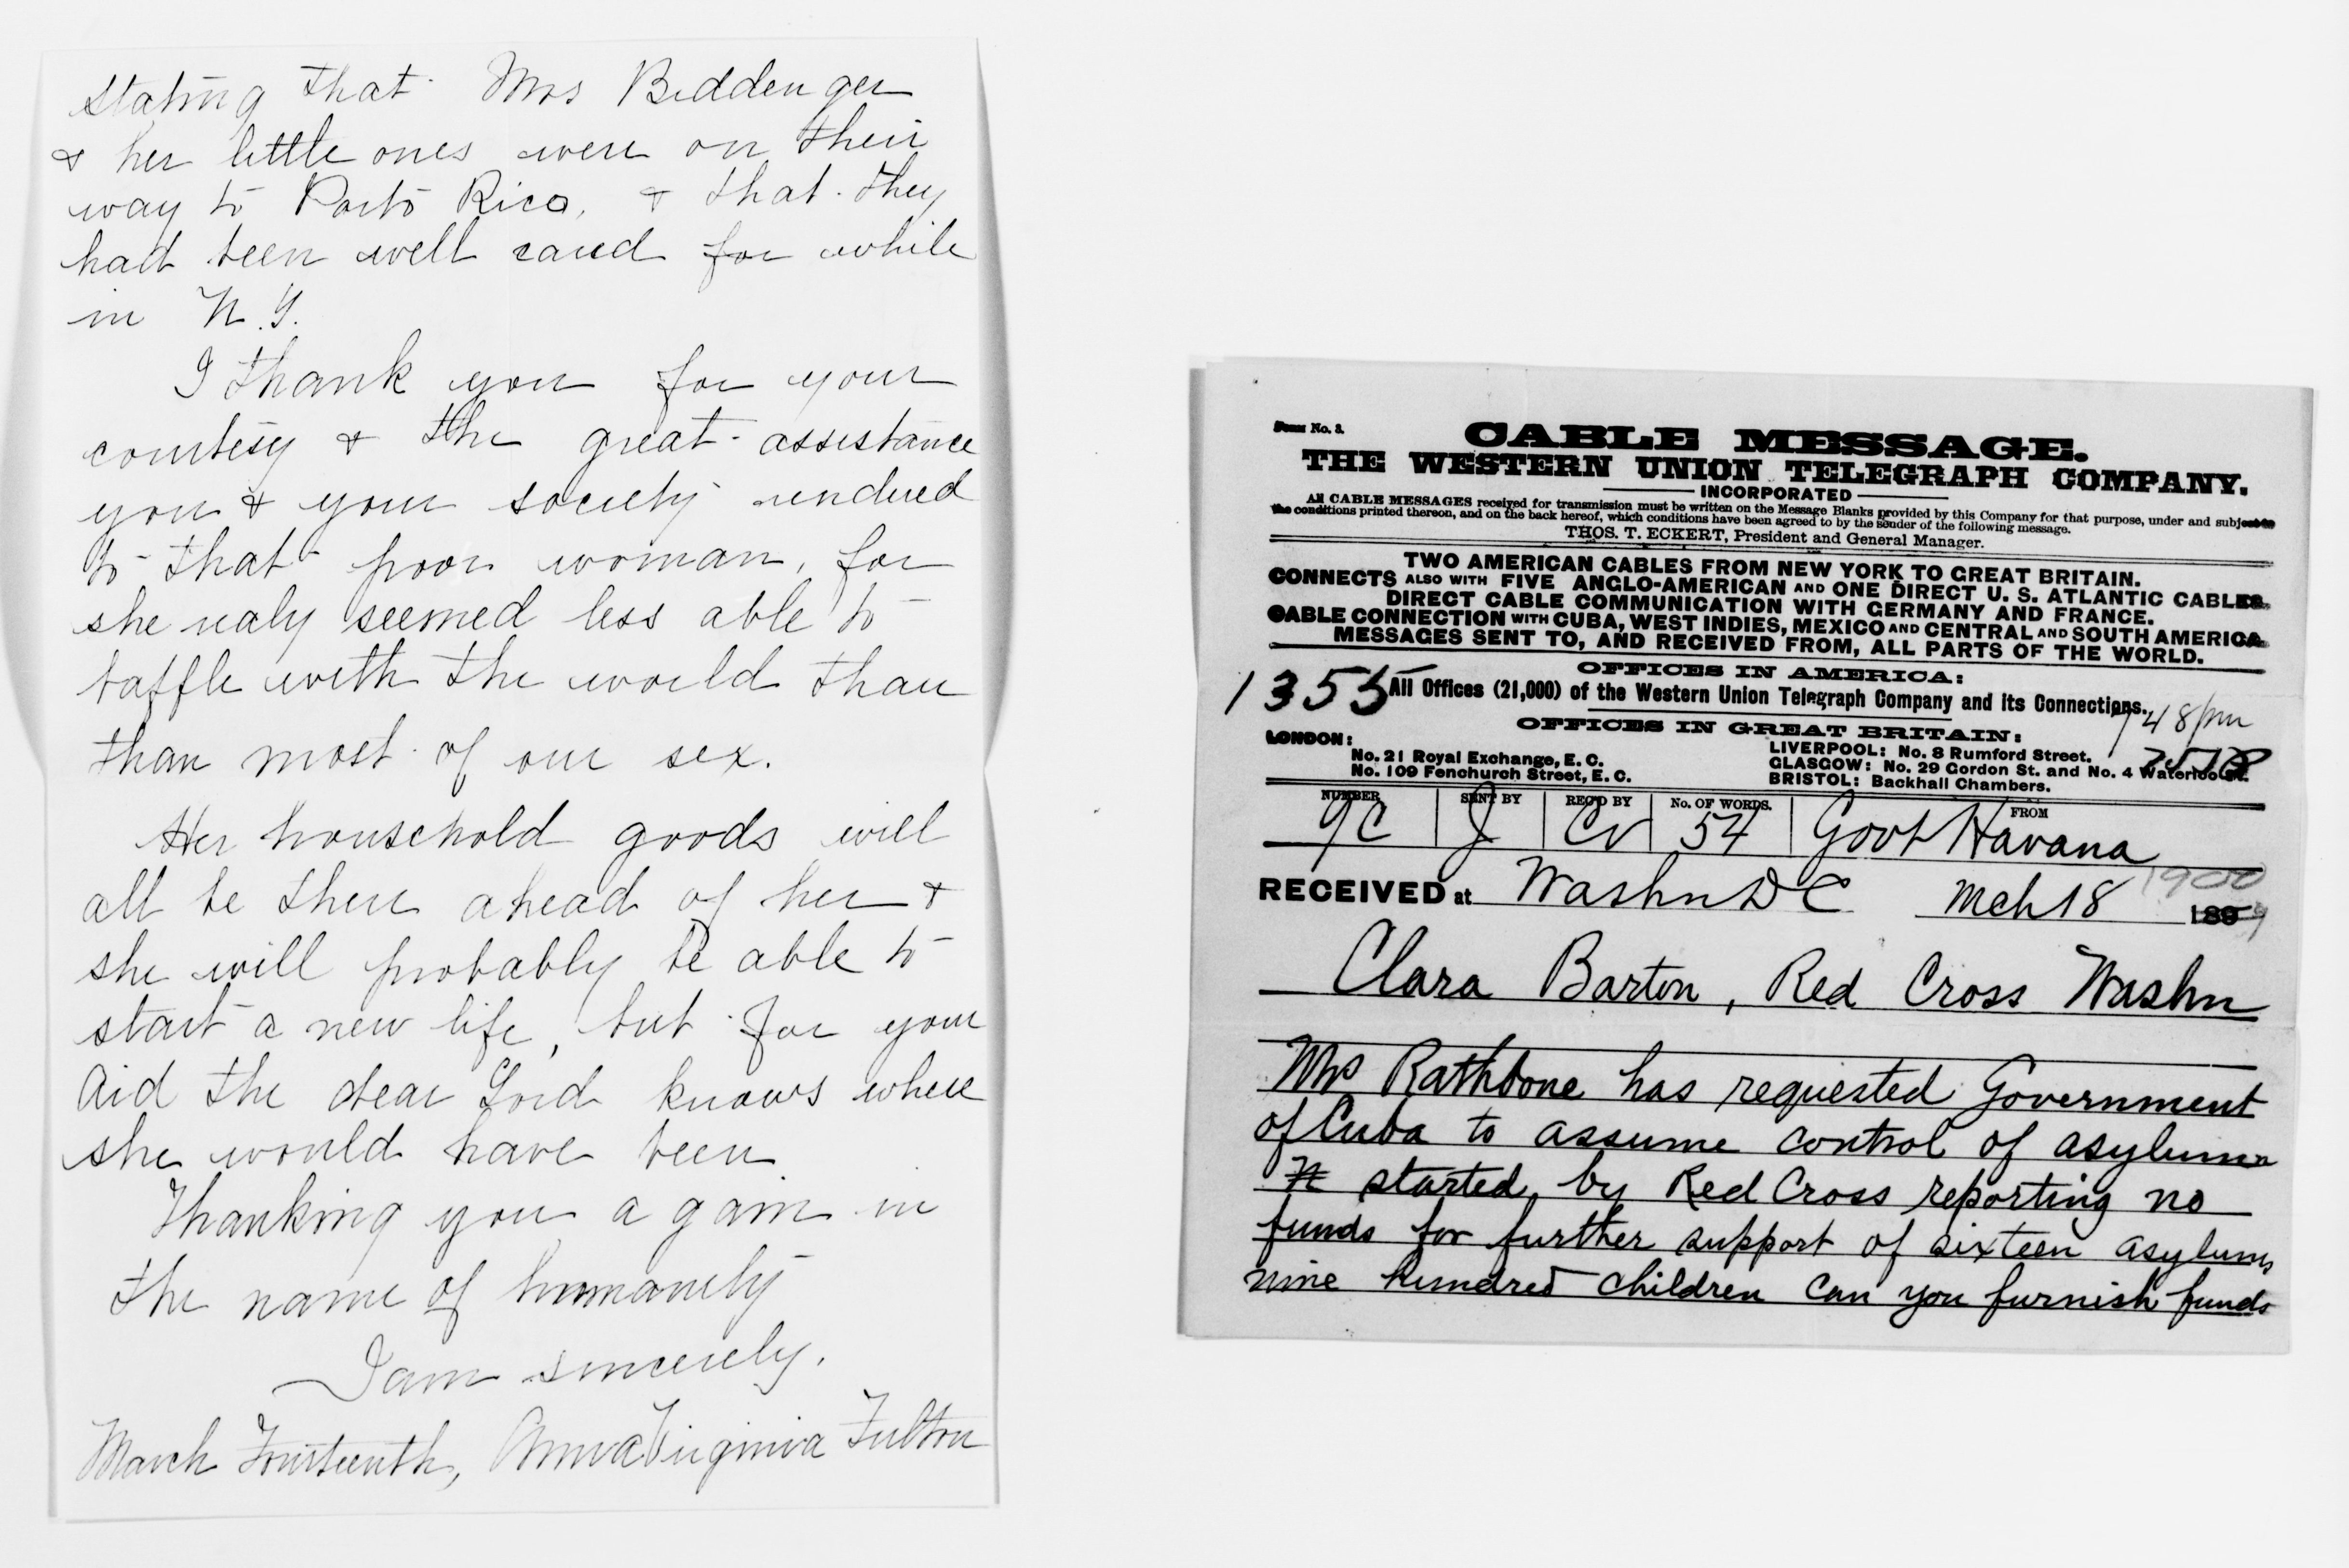 stating that Mrs Biddenger
& her little ones were on their
way to Porto Rico, & that they
had been well cared for while
in N.Y.
I thank you for your
courtesy & the great assistance
you & your society rendered
to that poor woman, for
she realy seemed less able to
baffle with the world than
than most of our sex.
Her household goods will
all be there ahead of her &
she will probably be able to
start a new life, but for your
aid the dear Lord knows where
she would have been
Thanking you again in
the name of humanity
I am sincerely,
March Fourteenth, Anna Virginia Fulton
Form No. 3.
CABLE MESSAGE.
THE WESTERN UNION TELEGRAPH COMPANY.
INCORPORATED
All CABLE MESSAGES received for transmission must be written on the Message Blanks provided by this Company for that purpose, under and subject to
the conditions printed thereon, and on the back hereof, which conditions have been agreed to by the sender of the following message.
THOS. T. ECKERT, President and General Manager.
TWO AMERICAN CABLES FROM NEW YORK TO GREAT BRITAIN.
CONNECTS ALSO WITH FIVE ANGLO-AMERICAN AND ONE DIRECT U. S. ATLANTIC CABLES.
DIRECT CABLE COMMUNICATION WITH GERMANY AND FRANCE.
CABLE CONNECTION WITH CUBA, WEST INDIES, MEXICO AND CENTRAL AND SOUTH AMERICA.
MESSAGES SENT TO, AND RECEIVED FROM, ALL PARTS OF THE WORLD.
OFFICES IN AMERICA:
1355 All Offices (21,000) of the Western Union Telegraph Company and its Connections.
OFFICES IN GREAT BRITAIN: 748pm
LONDON:
No. 21 Royal Exchange, E. C.
No. 109 Fenchurch Street, E. C.
LIVERPOOL: No. 8 Rumford Street.
GLASGOW: No. 29 Gordon St. and No. 4 Waterloo St.
BRISTOL: Backhall Chambers.
NUMBER SENT BY REC'D BY No. OF WORDS. FROM
9C J Cv 54 Govt Havana
RECEIVED at Washn DC Mch 18 1900 189
Clara Barton, Red Cross Washn
Mrs Rathbone has requested Government
of Cuba to assume control of asylums
started by Red Cross reporting no
funds for further support of sixteen asylums
nine hundred children can you furnish funds